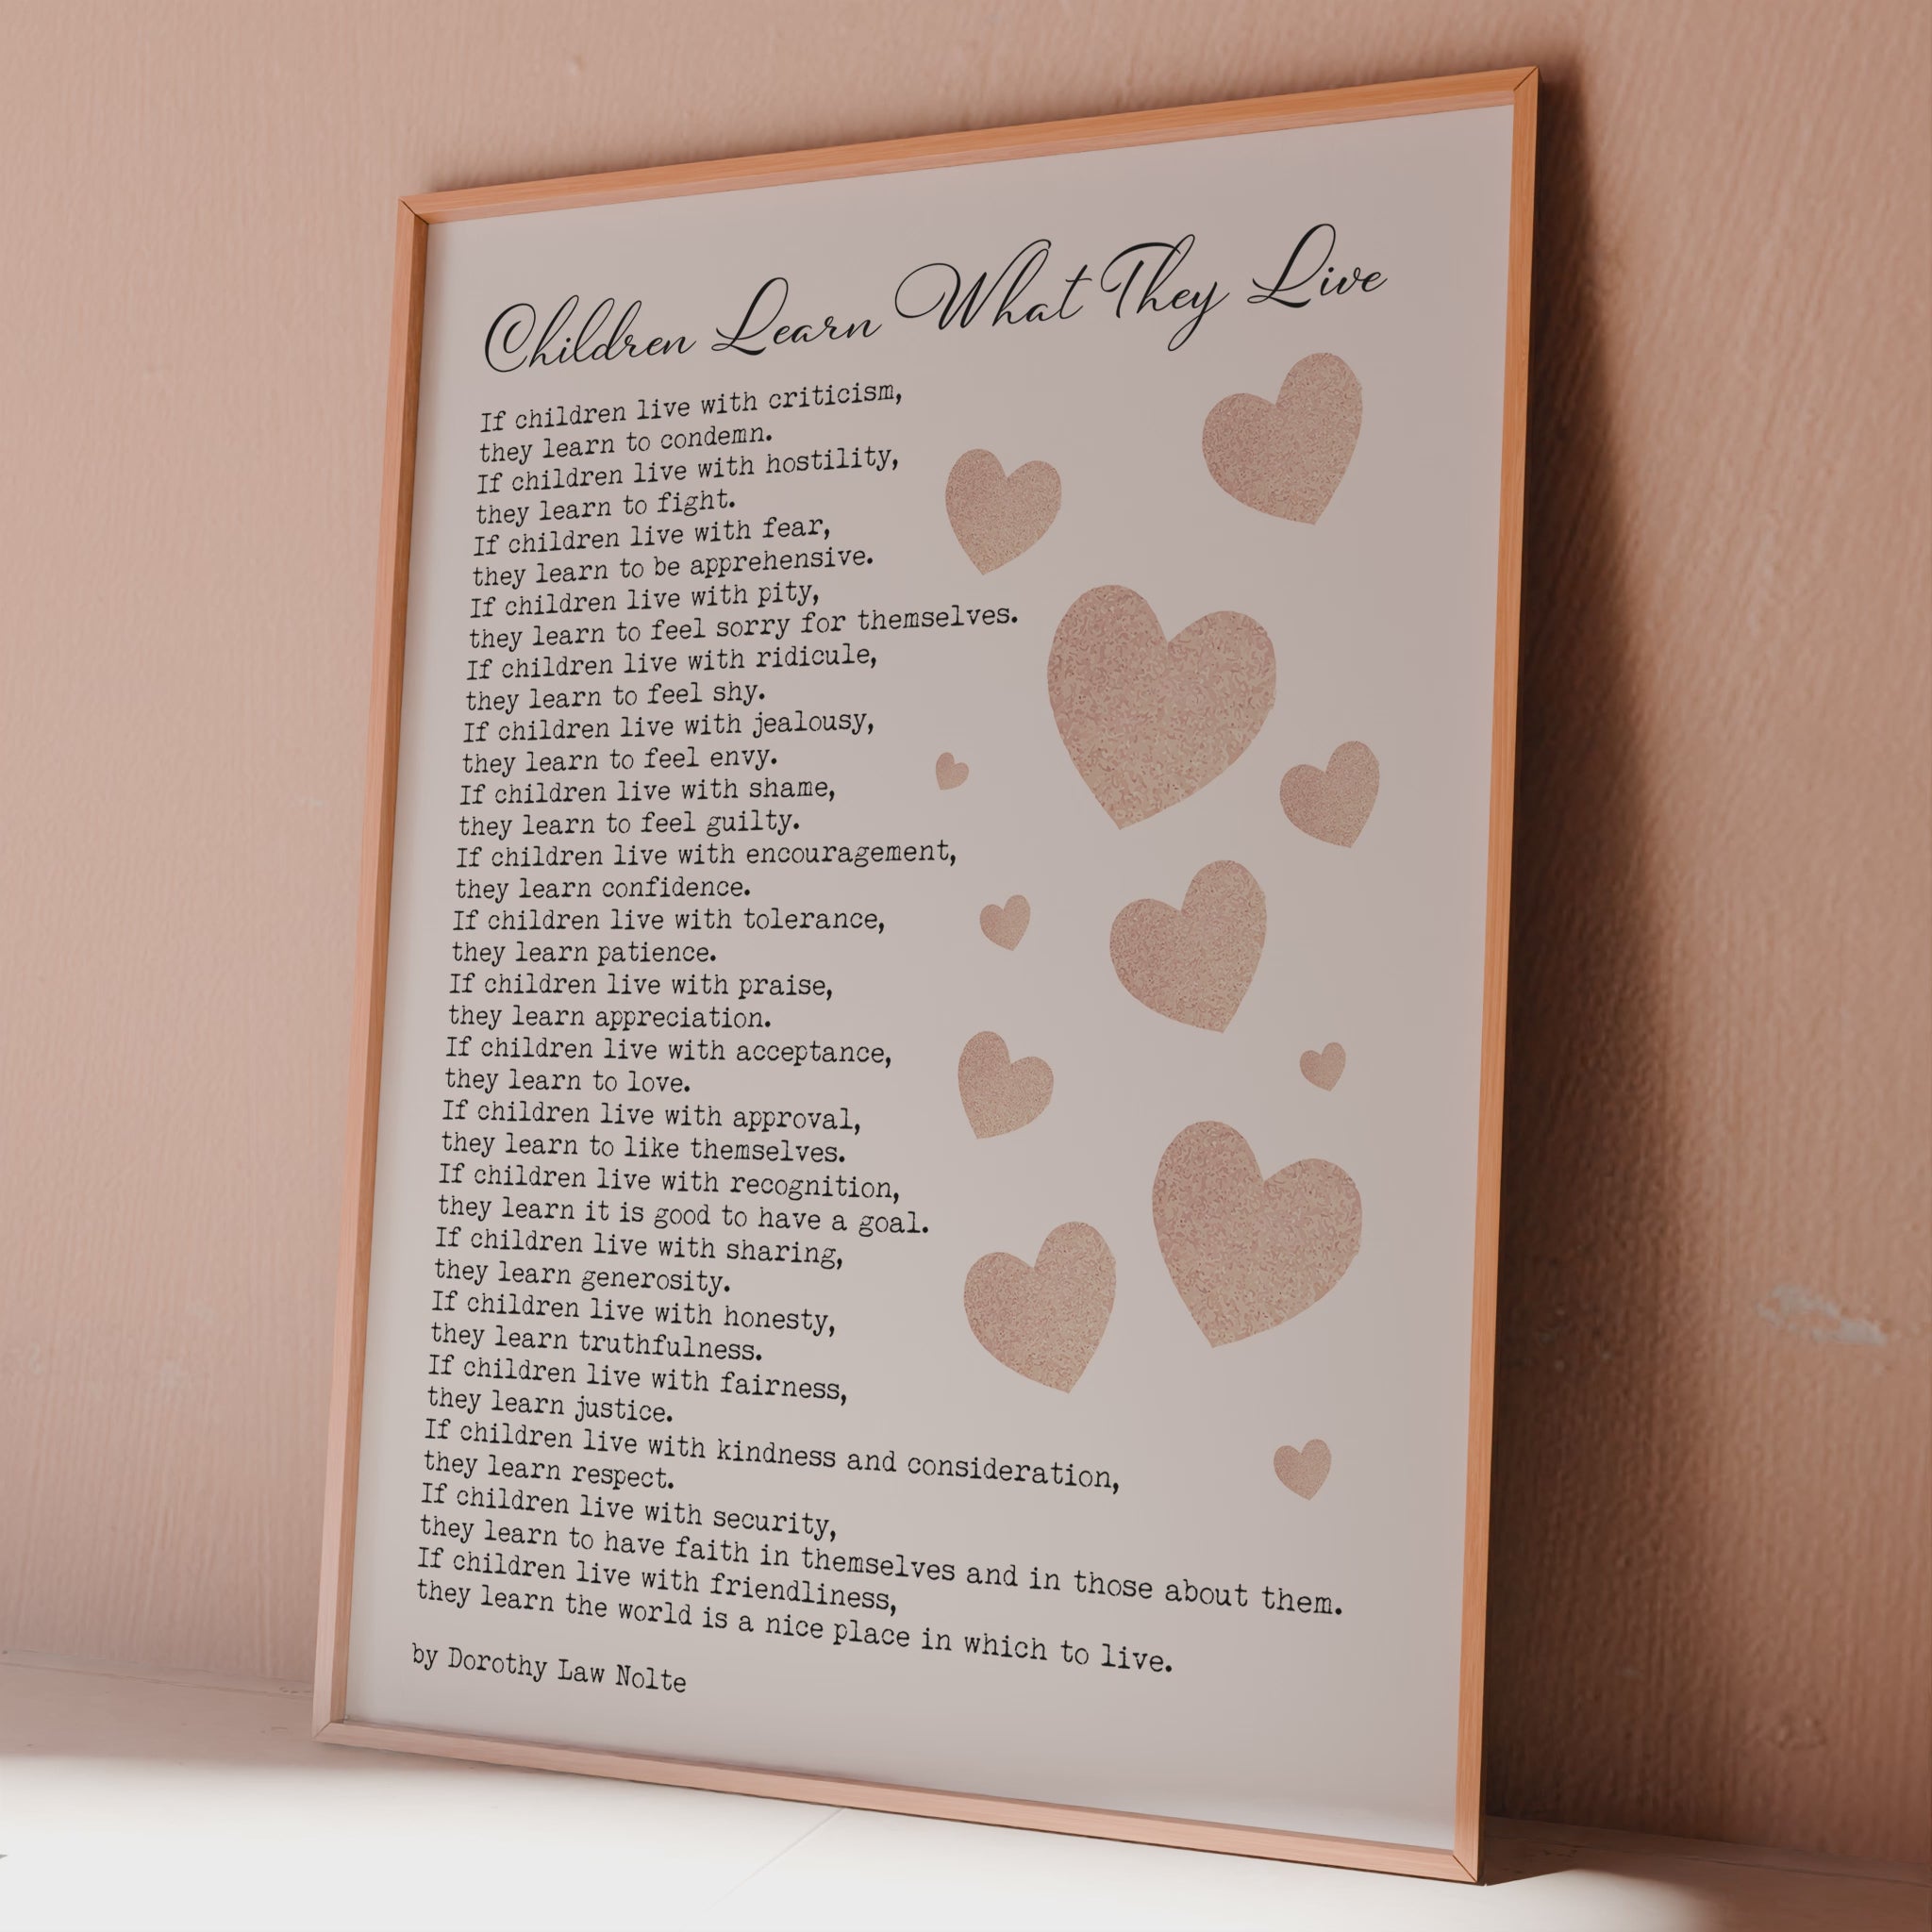 Children Learn What They Live
If children live with criticism,
they learn to condemn.
If children live with hostility,
they learn to fight.
If children live with fear,
they learn to be apprehensive.
If children live with pity,
they learn to feel sorry for themselves.
If children live with ridicule,
they learn to feel shy.
If children live with jealousy,
they learn to feel envy.
If children live with shame,
they learn to feel guilty.
If children live with encouragement,
they learn confidence.
If children live with tolerance,
they learn patience.
If children live with praise,
they learn appreciation.
If children live with acceptance,
they learn to love.
If children live with approval,
they learn to like themselves.
If children live with recognition,
they learn it is good to have a goal.
If children live with sharing,
they learn generosity.
If children live with honesty,
they learn truthfulness.
If children live with fairness,
they learn justice.
If children live with kindness and consideration,
they learn respect.
If children live with security,
they learn to have faith in themselves and in those about them.
If children live with friendliness,
they learn the world is a nice place in which to live.
by Dorothy Law Nolte